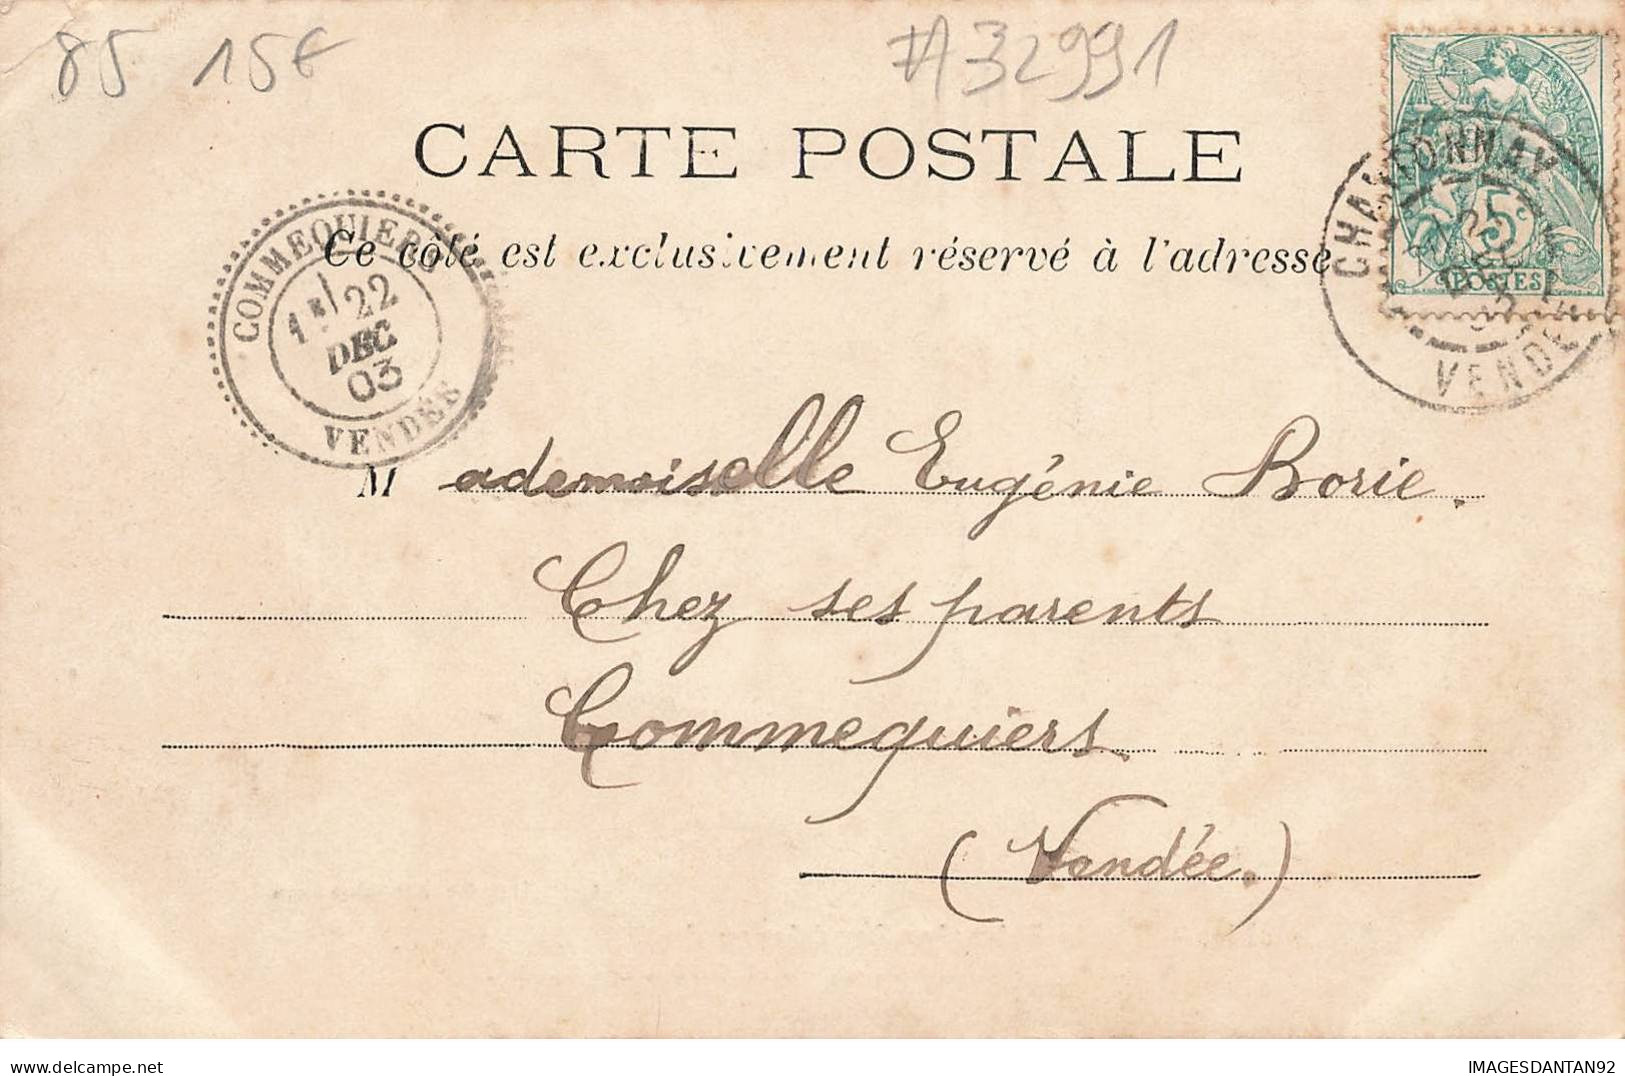 85 15€ #A32991
CARTE POSTALE
Ce côté est exclusivement réservé à l'adresse
COMMEQUIERS
22
DEC
03
VENDÉE
CHANTONNAY
21
DEC
03
VENDEE
5c
POSTES
Mademoiselle Eugénie Borie.
Chez ses parents
Commequiers
(Vendée.)
IMAGESDANTAN92